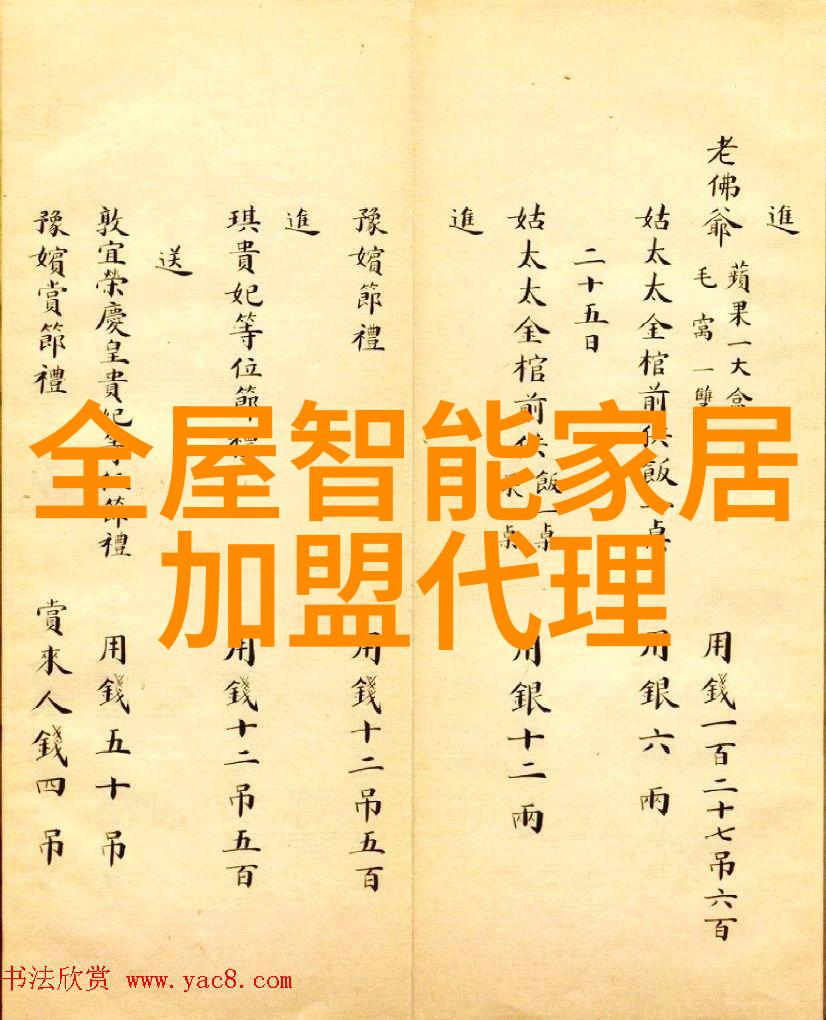 進
老佛爺 蘋果一大盒 毛窩一雙 用錢一百二十七吊六百
姑太太金棺前供飯一桌 用銀六兩
二十五日
姑太太金棺前供飯一桌 桌 用銀十二兩
進
豫嬪節禮 用錢十二吊五百
進
琪貴妃等位節禮 用錢十二吊五百
送
敦宜榮慶皇貴妃等位節禮 用錢五十吊
豫嬪賞節禮 賞來人錢四吊
全屋智能家居
加盟代理
书法欣赏 www.yac8.com